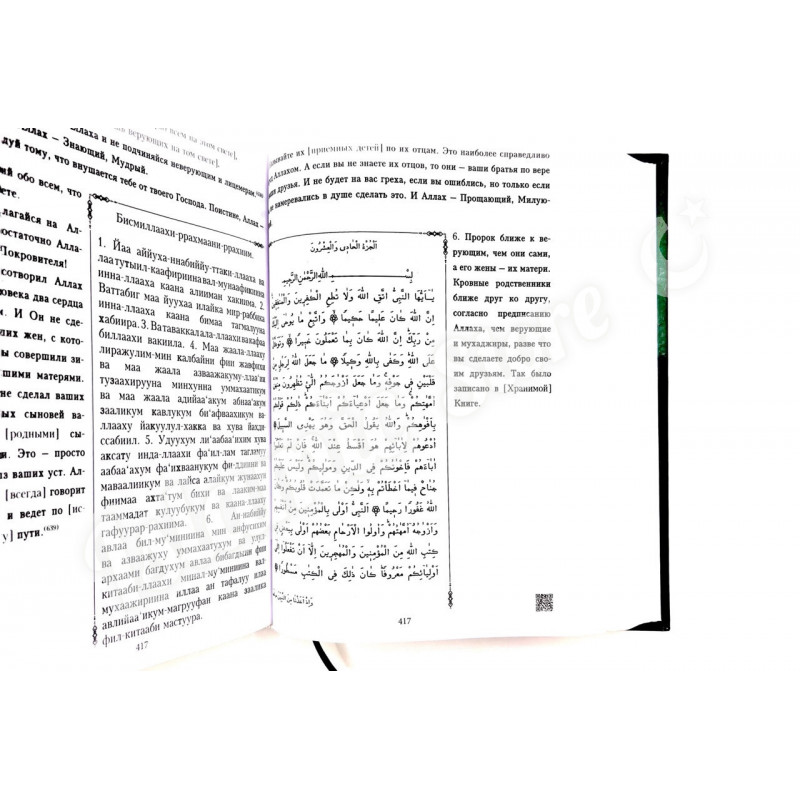 ий обо всем, что
лагайся на Ал-
достаточно Алла-
Покровителя!
сотворил Аллах
ловека два сердца
И Он не сде-
ших жен, с кото-
ы совершили зи-
шими матерями.
не сделал ваших
ых сыновей ва-
[родными] сы-
и. Это – просто
из ваших уст. Ал-
[всегда] говорит
и ведет по [ис-
у] пути.(639)
Аллаха и не подчиняйся неверующим и лицемерам,
Аллах – Знающий, Мудрый.
дуй тому, что внушается тебе от твоего Господа. Поистине, Аллах –
Бисмиллаахи-ррахмаани-ррахиим.
1. Йаа аййуха-ннабиййу-ттаки-ллааха ва
лаатутыил-каафирииина вал-мунаафикиина
инна-ллааха каана алииман хакиима. 2.
Ваттабиг маа йуухаа илайка мир-раббика
инна-ллааха каана бимаа тагмалууна
хабиира. 3. Ватаваккалала-ллаахи вакафаа
биллаахи вакиила. 4. Маа жаала-ллааху
лиражулим-мин калбайни фии жавфихи
ва маа жаала азваажакуму-ллаа'ии
тузаахирууна минхунна уммахаатикум
ва маа жаала адийаа'акум абнаа'акум
зааликум кавлукум би'афваахикум ва-
ллааху йакуулул-хакка ва хува йахди-
ссабиил. 5. Удуухум ли'аабаа'ихим хува
аксату инда-ллаахи фа'ил-лам тагламуу
аабаа'ахум фа'ихваанукум фи-ддиини ва
мавааалиикум ва лайса алайкум жунаахун
фиимаа ахта'тум бихи ва лааким-маа
тааммадат кулуубукум ва каана-ллааху
гафуурар-рахиима. 6. Ан-набиййу
авлаа бил-му'миниина мин анфусихим
ва азвааджуху уммахаатухум ва улул-
архаами багдухум авлаа бибагдын фии
китааби-ллаахи минал-му'миниина вал-
мухаажириина иллаа ан тафалуу илаа
авлийаа'икум-магрууфан каана заалика
фил-китааби мастуура.
417
ывайте их [приемных детей] по их отцам. Это наиболее справедливо
д Аллахом. А если вы не знаете их отцов, то они – ваши братья по вере
ши друзья. И не будет на вас греха, если вы ошиблись, но только если
намеревались в душе сделать это. И Аллах – Прощающий, Милую-
الجزء الحادي والعشرون
بسم الله الرحمن الرحيم
يا أيها النبي اتق الله ولا تطع الكفرين والمنفقين
إن الله كان عليما حكيما واتبع ما يوحى إليك
من ربك إن الله كان بما تعملون خبيرا وتوكل
على الله وكفى بالله وكيلا ما جعل الله لرجل من
قلبين في جوفه وما جعل أزوجكم الئي تظهرون منهن
أمهتكم وما جعل أدعياءكم أبناءكم ذلكم قولكم
بأفوهكم والله يقول الحق وهو يهدي السبيل
ادعوهم لآبائهم هو أقسط عند الله فإن لم تعلموا
آباءهم فإخونكم في الدين ومواليكم وليس عليكم
جناح فيما أخطأتم به ولكن ما تعمدت قلوبكم وكان
الله غفورا رحيما النبي أولى بالمؤمنين من أنفسهم
وأزوجه أمهتهم وأولوا الأرحام بعضهم أولى ببعض في
كتب الله من المؤمنين والمهجرين إلا أن تفعلوا إلى
أوليائكم معروفا كان ذلك في الكتب مسطورا
6. Пророк ближе к ве-
рующим, чем они сами,
а его жены – их матери.
Кровные родственники
ближе друг ко другу,
согласно предписанию
Аллаха, чем верующие
и мухаджиры, разве что
вы сделаете добро сво-
им друзьям. Так было
записано в [Хранимой]
Книге.
417